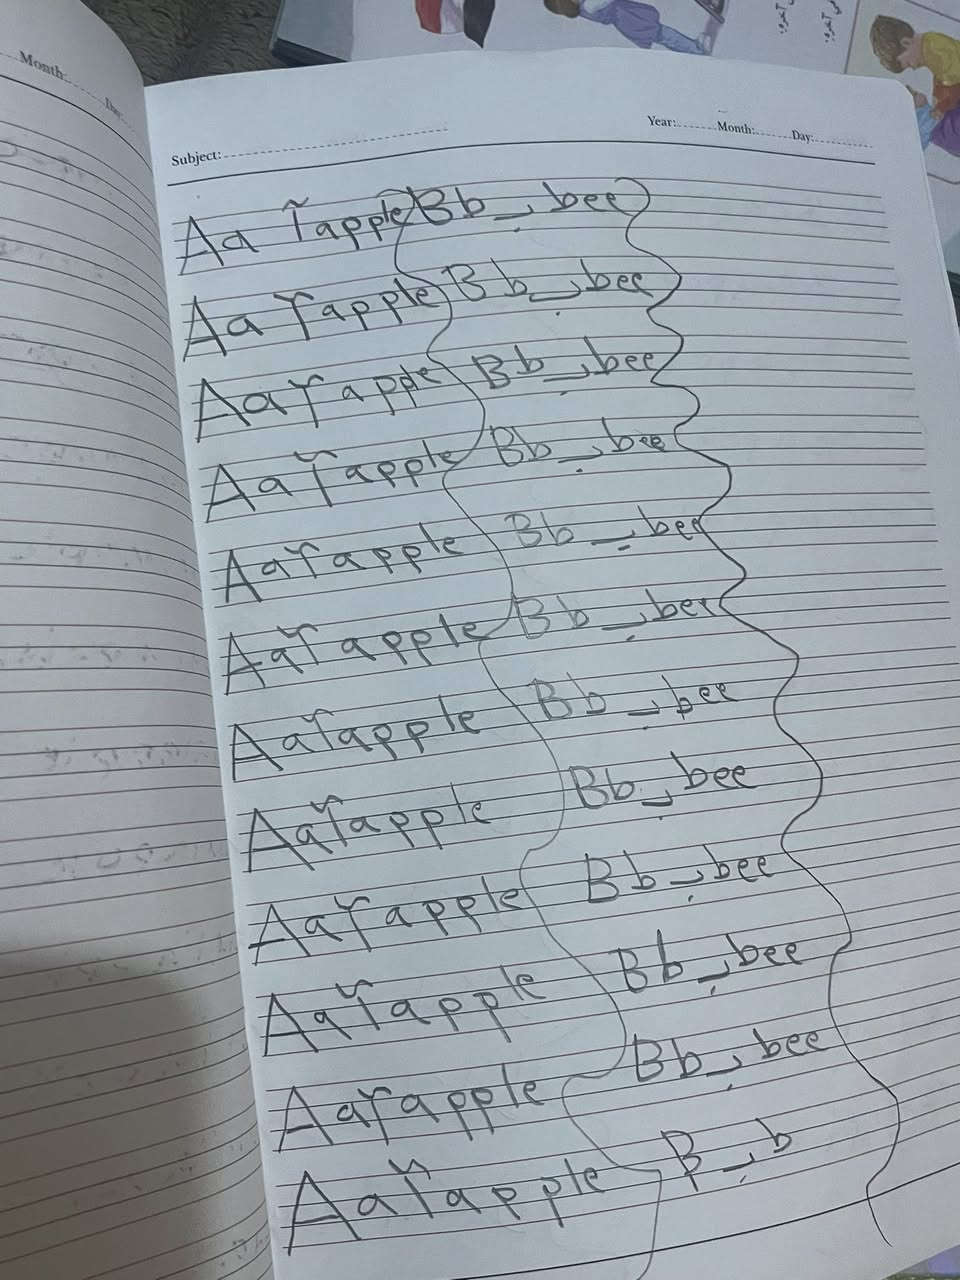 Month: Day:
Year: Month: Day:
Subject:
Aa آ apple Bb ب bee
Aa آ apple Bb ب bee
Aa آ apple Bb ب bee
Aa آ apple Bb ب bee
Aa آ apple Bb ب bee
Aa آ apple Bb ب bee
Aa آ apple Bb ب bee
Aa آ apple Bb ب bee
Aa آ apple Bb ب bee
Aa آ apple Bb ب bee
Aa آ apple Bb ب bee
Aa آ apple B ب b